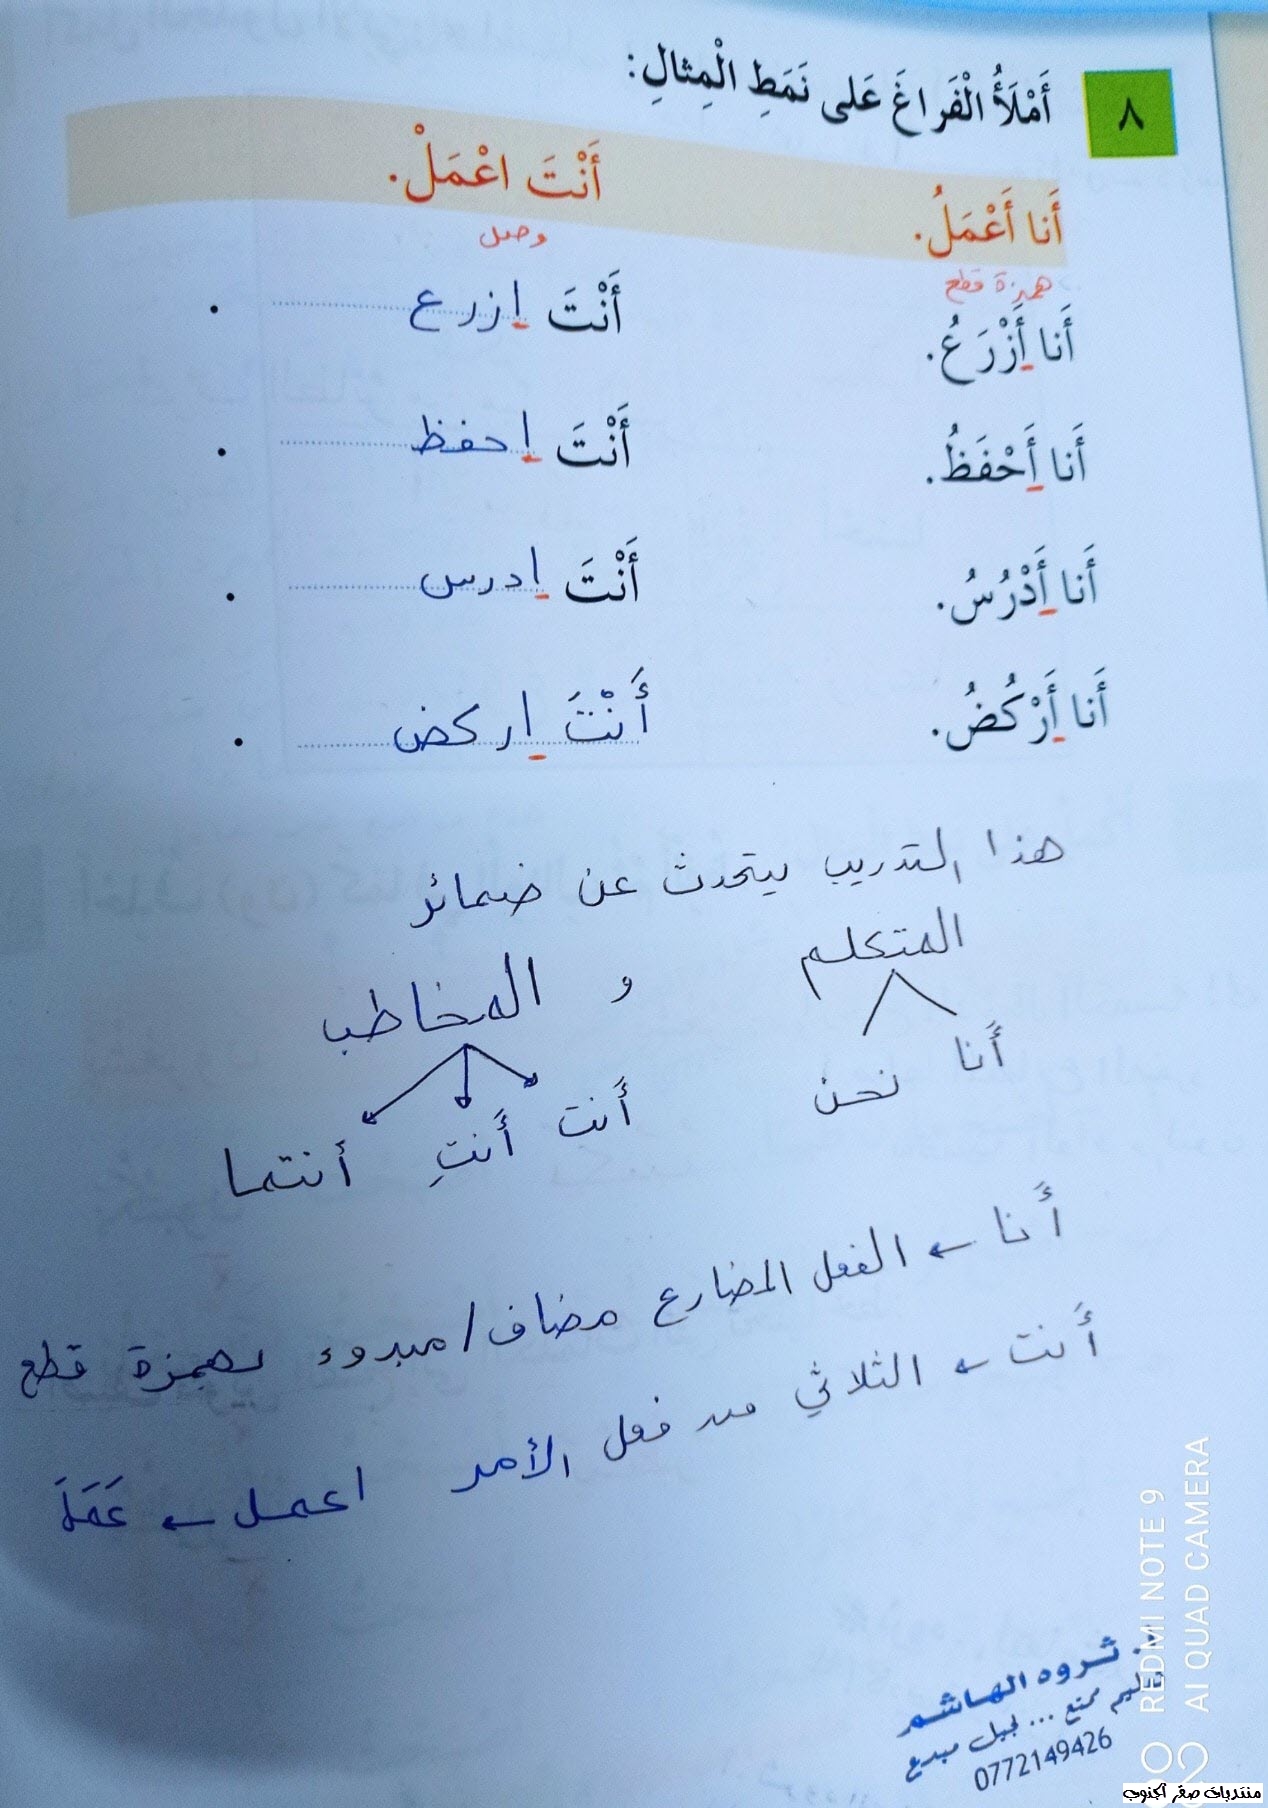 ٨ أَمْلَأُ الْفَراغَ عَلى نَمَطِ الْمِثالِ:
أَنا أَعْمَلُ. أَنْتَ اعْمَلْ.
همزة قطع وصل
أَنا أَزْرَعُ. أَنْتَ ازرع .
أَنا أَحْفَظُ. أَنْتَ احفظ .
أَنا أَدْرُسُ. أَنْتَ ادرس .
أَنا أَرْكُضُ. أَنْتَ اركض .
هذا التدريب يتحدث عن ضمائر
المتكلم و المخاطب
أَنا نحن أَنت أَنتِ أنتما
أَنا ← الفعل المضارع مضاف/مبدوء بهمزة قطع
أَنت ← الثلاثي من فعل الأمر اعمل ← عَمَلَ
ثروه الهاشم
ممتع ... لجيل مبدع
0772149426
REDMI NOTE 9
AI QUAD CAMERA
منتديات صقر الجنوب